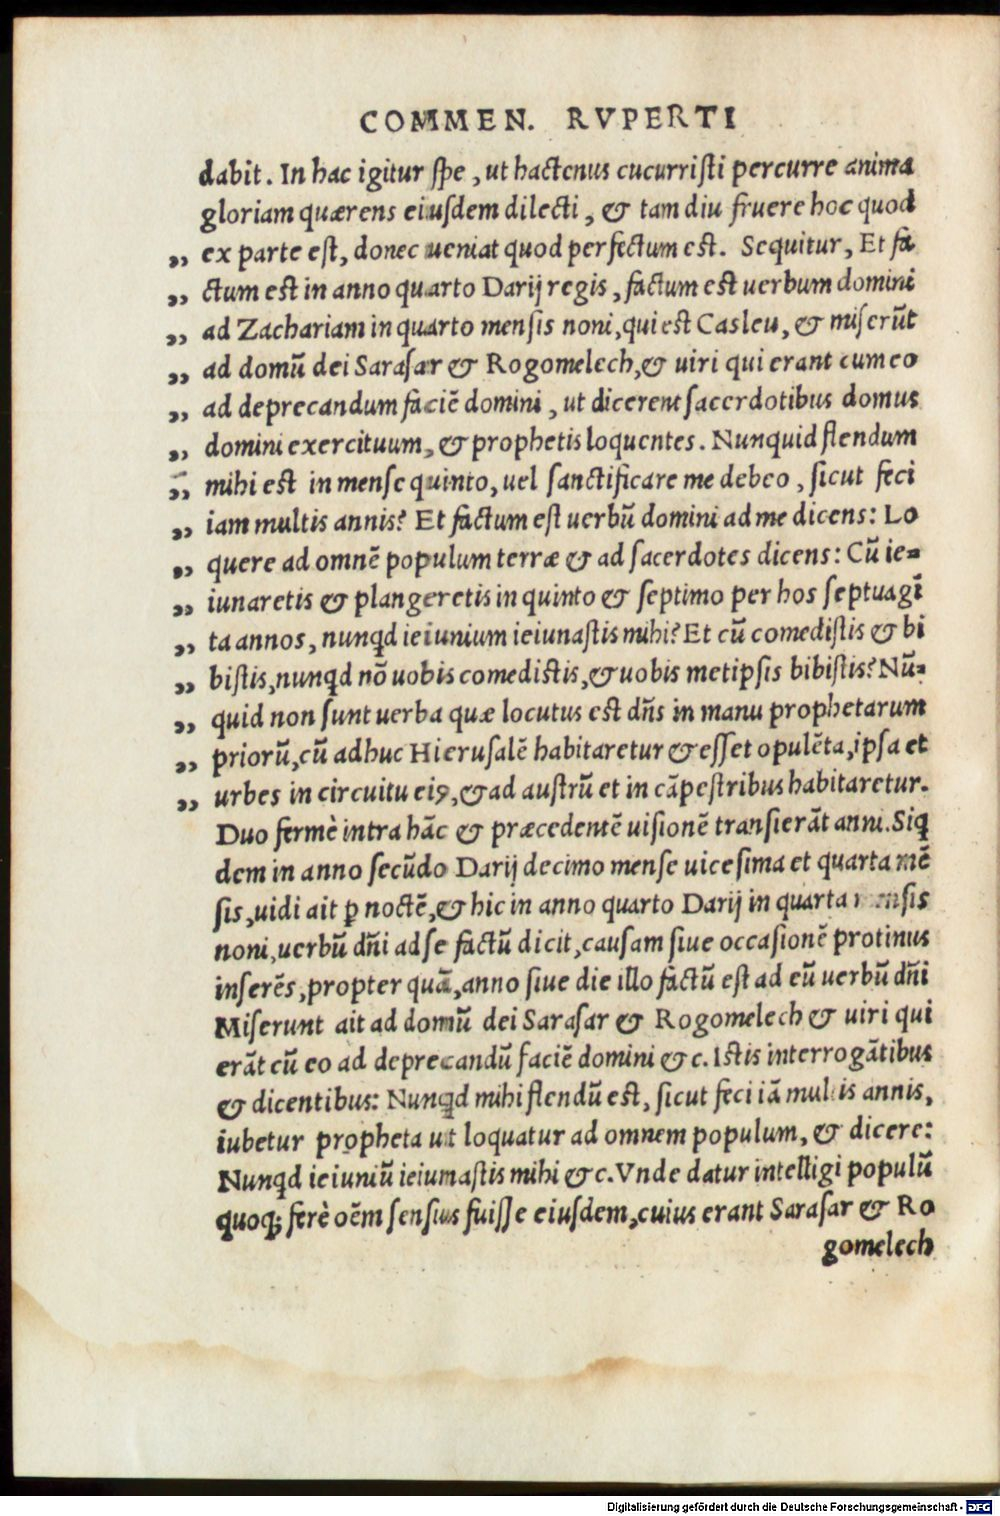 COMMEN. RVPERTI
dabit. In hac igitur ſpe, ut hactenus cucurriſti percurre anima
gloriam quærens eiuſdem dilecti, & tam diu fruere hoc quod
„ ex parte eſt, donec ueniat quod perfectum eſt. Sequitur, Et fa
„ ctum eſt in anno quarto Darij regis, factum eſt uerbum domini
„ ad Zachariam in quarto menſis noni, qui eſt Casleu, & miſerūt
„ ad domū dei Saraſar & Rogomelech, & uiri qui erant cum eo
„ ad deprecandum faciē domini, ut dicerent ſacerdotibus domus
„ domini exercituum, & prophetis loquentes. Nunquid flendum
„ mihi eſt in menſe quinto, uel ſanctificare me debeo, ſicut feci
„ iam multis annis? Et factum eſt uerbū domini ad me dicens: Lo
„ quere ad omnē populum terræ & ad ſacerdotes dicens: Cū ie=
„ iunaretis & plangeretis in quinto & ſeptimo per hos ſeptuagī
„ ta annos, nunqd ieiunium ieiunaſtis mihi? Et cū comediſtis & bi
„ biſtis, nunqd nō uobis comediſtis, & uobis metipſis bibiſtis? Nū=
„ quid non ſunt uerba quæ locutus eſt dñs in manu prophetarum
„ priorū, cū adhuc Hieruſalē habitaretur & eſſet opulēta, ipſa et
„ urbes in circuitu eiꝰ, & ad auſtrū et in cāpeſtribus habitaretur.
Duo fermè intra hāc & præcedentē uiſionē tranſierāt anni. Siqͥ
dem in anno ſecūdo Darij decimo menſe uiceſima et quarta mē
ſis, uidi ait ꝑ noctē, & hic in anno quarto Darij in quarta menſis
noni, uerbū dñi ad ſe factū dicit, cauſam ſiue occaſionē protinus
inſerēs, propter quā, anno ſiue die illo factū eſt ad eū uerbū dñi
Miſerunt ait ad domū dei Saraſar & Rogomelech & uiri qui
erāt cū eo ad deprecandū faciē domini &c. Iſtis interrogātibus
& dicentibus: Nunqd mihi flendū eſt, ſicut feci iā multis annis,
iubetur propheta ut loquatur ad omnem populum, & dicere:
Nunqd ieiuniū ieiunaſtis mihi &c. Vnde datur intelligi populū
quoq; ferè oēm ſenſus fuiſſe eiuſdem, cuius erant Saraſar & Ro
gomelech
Digitalisierung gefördert durch die Deutsche Forschungsgemeinschaft - DFG